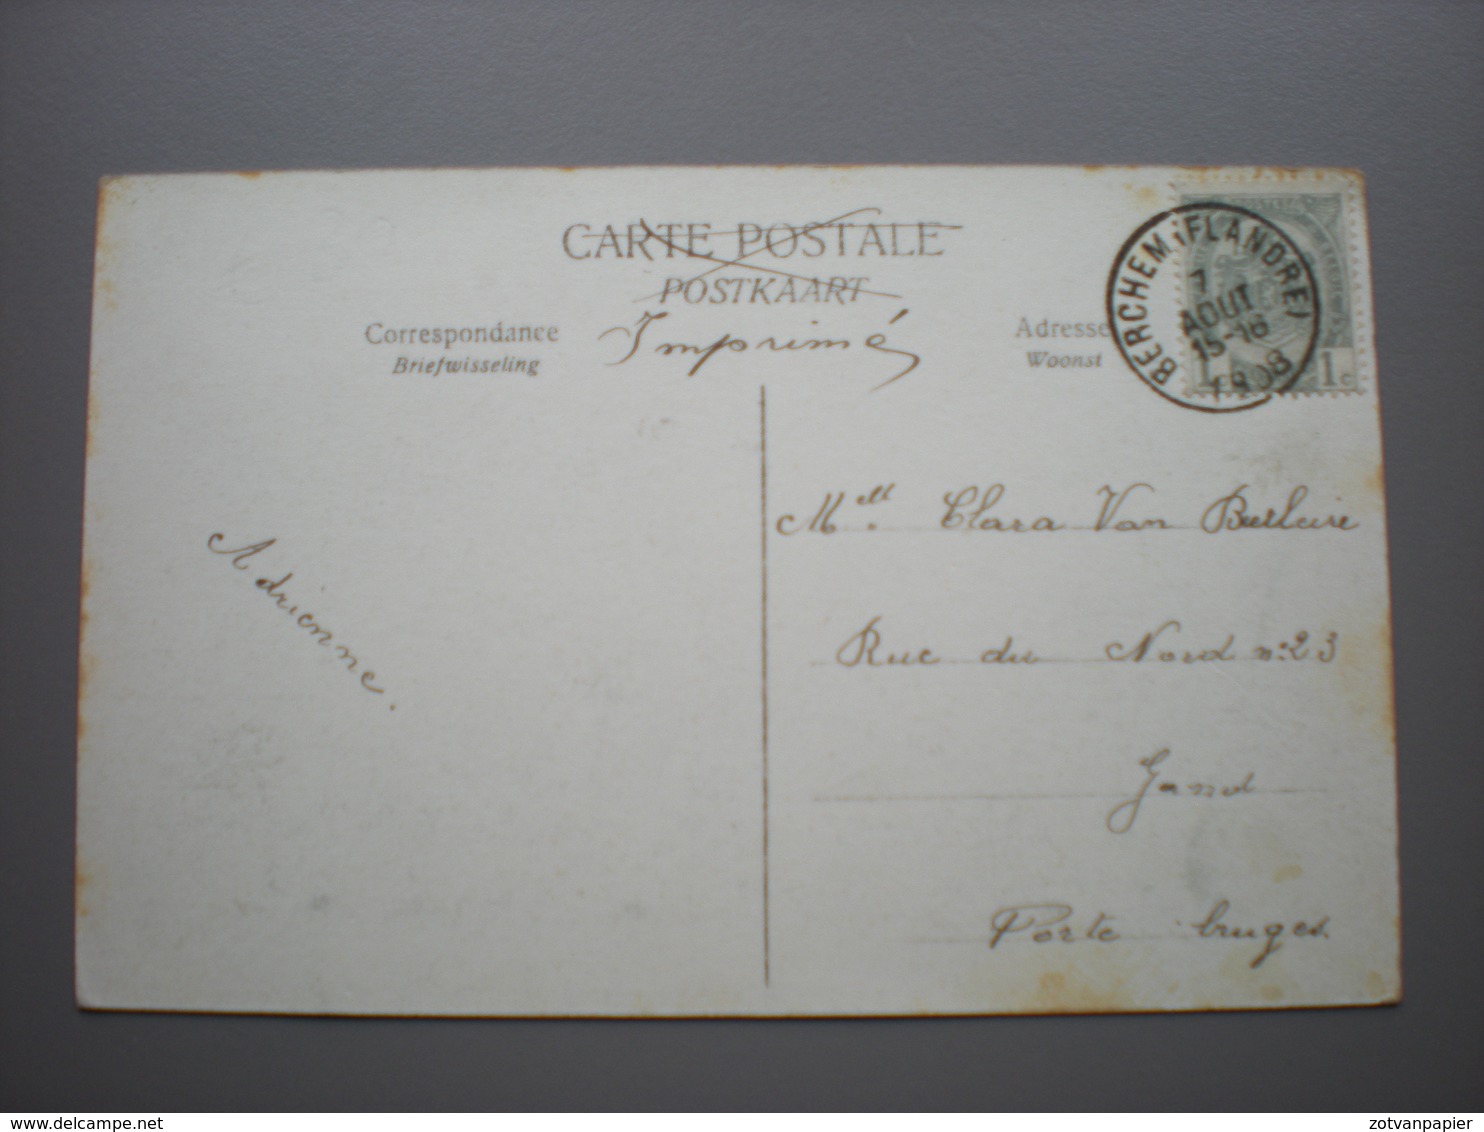 CARTE POSTALE
POSTKAART
Imprimé
Correspondance
Briefwisseling
Adresse
Woonst
BERCHEM (FLANDRE)
7
AOUT
15-16
1908
1 1c
Mell. Clara Van Burleire
Rue du Nord no: 23
Gand
Porte bruges.
Adrienne.
delcampe.net
zotvanpapier